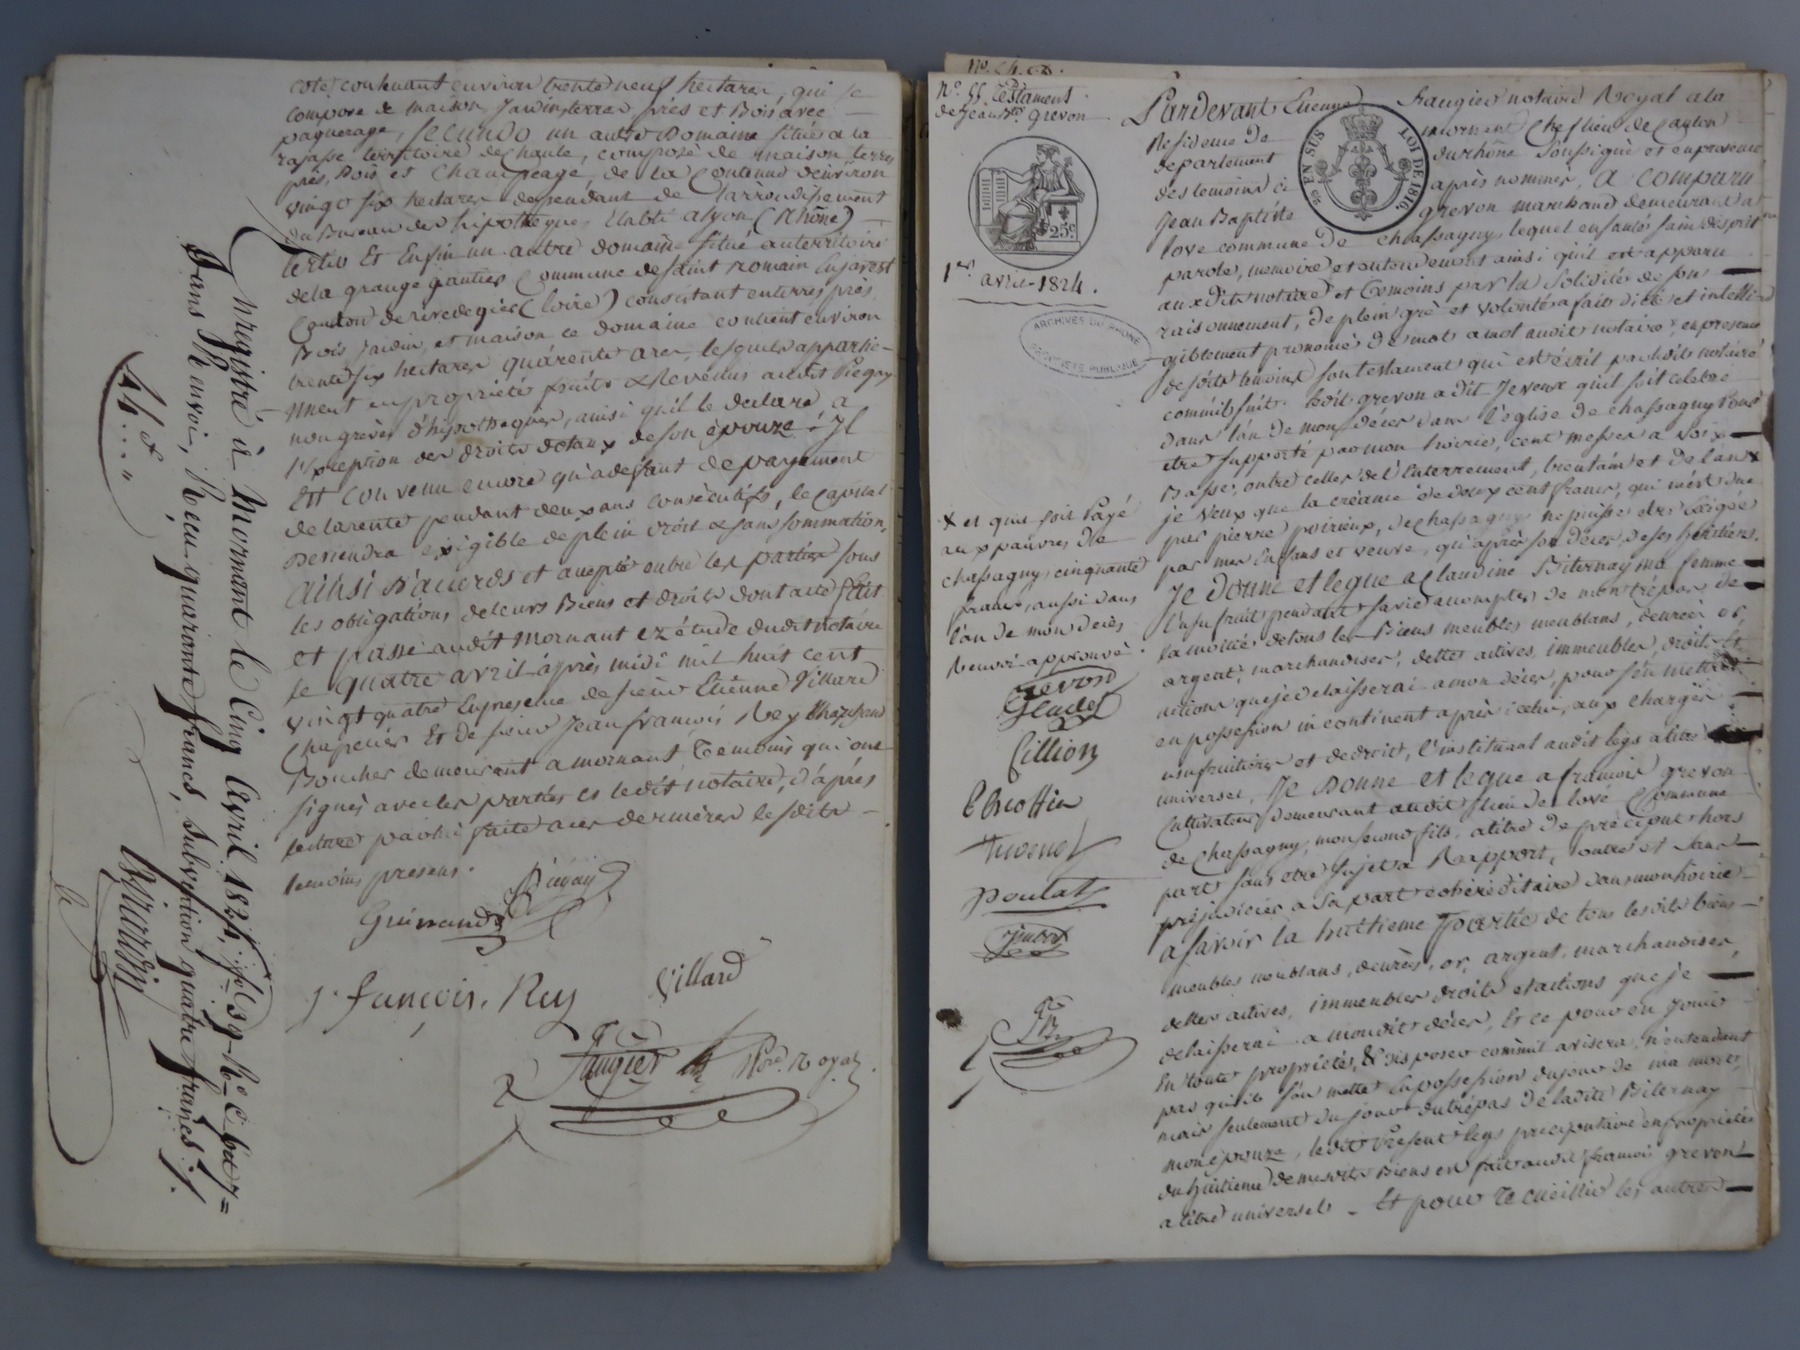 cote contenant environ trente neuf hectares, qui se
compose de maison Jardin, terres prés et Bois avec
paquerage, secundo un autre Domaine situé a la
rajasse territoire de chante, composé de maison, terres
prés, Bois et Champeage, de la Contenue d'environ
vingt six hectares dependant de l'arrondissement
du Bureau des hipotheques Etabli a lyon (Rhône)
tertio Et Enfin un autre domaine situé au territoire
de la grange gautier Commune de saint romain En jarest
Canton de rivedegier (Loire) consistant en terres, prés,
Bois Jardin, et maison ce domaine contient environ
trente six hectares quarente ares, lesquels appartie-
nnent en propriété fruits & Revenus audit Piegay
non grevés d'hipotheques, ainsi qu'il le declare, a
l'Exception des droits dotaux de son épouze. Il
Est convenu encore qu'a deffaut de payement
de la rente pendant deux ans consécutifs, le Capital
Deviendra exigible de plein droit & sans sommation,
Ainsi D'accord et accepté entre les parties sous
les obligations de leurs Biens et droits dont acte fait
et passé audit Mornant ez étude dudit notaire
le quatre avril après midi mil huit cent
vingt quatre En presence de sieur Etienne Villard
Chapelier Et de sieur Jean françois Rey Marchand
Boucher demeurant a mornant, Temoins qui ont
signés avec les parties et ledit notaire, d'après
lecture par lui faite aces dernieres lesdits
temoins presens.
Piegay
Guinand
j. fançois. Rey
Villard
Faugier
Nore. Royal.
Enregistré à Mornant le Cinq Avril 1824, fol. 39
sans Renvoi, Reçu quarante francs, subvention quatre francs.
44 f. ..
N°. 55 Testament
de Jean Bte. grevon
25c.
1er. avril 1824.
ARCHIVES DU RHÔNE
PROPRIÉTÉ PUBLIQUE
EN SUS
LOI DE 1816.
Pardevant Etienne faugier notaire Royal a la
Residence de mornant Chef lieu de Canton
departement du rhône soussigné et en presence
des temoins ci après nommés, a comparu
Jean Baptiste grevon marchand demeurant a
love commune de chassagny, lequel en santé, sain d'esprit
parole, memoire et entendement ainsi qu'il est apparu
auxdits notaire et temoins par la Solidité de son
raisonnement, de plein gré et volonté a fait, dicté et intelli-
giblement prononcé de mot a mot audit notaire, en presence
desdits temoins son testament qui est écrit par ledit notaire
comm'il suit. ledit grevon a dit Je veux qu'il soit celebré
dans l'an de mon décès dans l'église de chassagny pour
etre supporté par mon hoirie, cent messes a voix
Basse, outre celles de l'Enterrement, huitain et de l'an X
je veux que la créance de deux cent francs, qui m'est due
par pierre poirieux, de chassagny ne puisse etre Exigée
par mes Enfans et veuve, qu'après son décès, de ses heritiers.
Je donne et legue a Claudine Biternay ma femme
l'usufruit pendant sa vie a compter de mon trépas de
la moitié de tous les Biens meubles meublans, denrées or,
argent, marchandises, dettes actives, immeubles, droits Et
actions que je delaisserai a mon décès, pour s'en mettre
en possession incontinent après icelui, aux charges
usufruitieres et de droit, l'instituant audit legs a titre
universel, Je Donne et legue a françois grevon
Cultivateur demeurant audit lieu de lové Commune
de Chassagny, mon second fils, a titre de préciput & hors
part sans etre sujet a Rapport, l'outre et sans
prejudicier a sa part cohéréditaire dans mon hoirie
a savoir la huitieme partie de tous lesdits biens
meubles meublans, denrées, or, argent, marchandises,
dettes actives, immeubles droits et actions que je
delaisserai a mondit décès, Et ce pour en jouir
En toute propriété, & disposer comm'il avisera, n'entendant
pas qu'il s'en mette En possession du jour de ma mort,
mais seulement du jour du trépas de ladite Biternay
mon épouze, ledit Présent legs precipuitaire en propriété
du huitieme de mesdits Biens en fait audit françois grevon
a titre universel. Et pour recueillir les autres
X et qu'il soit Payé
aux pauvres de
chassagny, cinquante
francs, aussi dans
l'an de mon décès
Renvoi approuvé.
Grevon
Cillion
Thuenet
Poulat